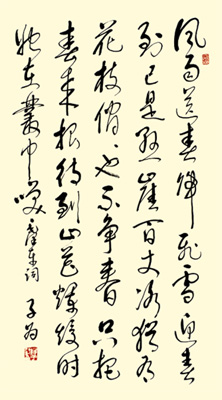 风雨送春归飞雪迎春
到已是悬崖百丈冰犹有
花枝俏俏也不争春只把
春来报待到山花烂熳时
她在叢中笑 毛泽东词 子为